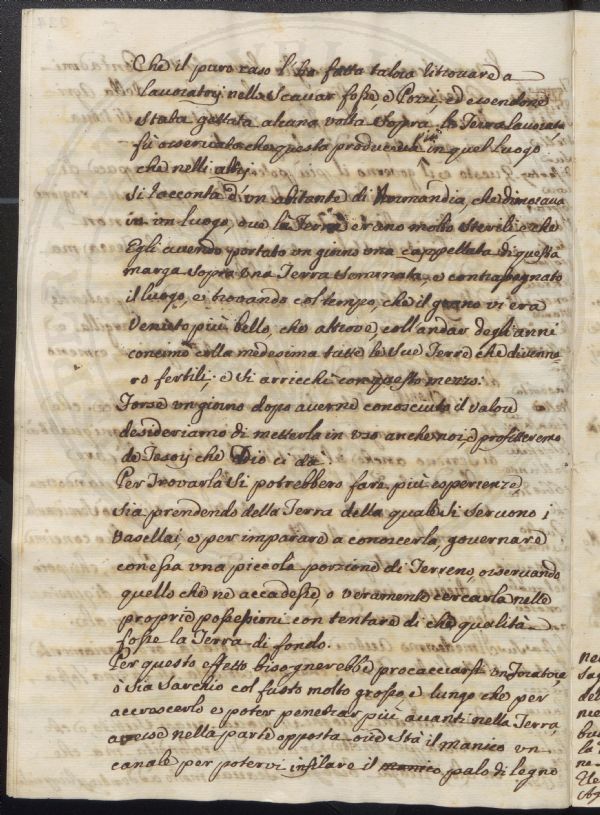 Che il puro caso l'ha fatta talora litrouare a
lauoratorj nelle Scauar fosse, e Pozzi, ed essendone
Stata gettata alcuna volta Sopra la Terra lauorata
fù osseruato che questa produceua più in quel luogo
che nelli altrj
Si racconta d'un abitante di Normandia, che dimoraua
in un luogo, oue le Terre erano molto sterili, e che
Egli auendo portato un giorno una cappellata di questa
marga sopra una Terra Seminata, e contrasegnato
il luogo, e trouando col tempo, che il grano vi era
Venuto più bello, che altroue, coll'andar degli anni
concimò colla medesima tutte le Sue Terre che diuenne
ro fertili, e Si arricchì con questo mezzo.
Forse un giorno dopo auerne conosciuto il valore
desideriamo di metterla in uso anche noi, e profitteremo
de Tesorj che Dio ci dà.
Per Trouarla Si potrebbero fare più esperienze,
Sia prendendo della Terra della quale Si seruono i
Vasellai, e per imparare a conoscerla, gouernare
con essa una piccola porzione di Terreno, osseruando
quello che ne accadesse, o veramente cercarla nelle
proprie possessioni con tentare di che qualità
fosse la Terra di fondo.
Per questo effetto bisognerebbe procacciarsi un Foratoio
ò sia Sarchio col fusto molto grosso, e lungo che per
accrescerlo e poter penetrar più auanti nella Terra,
auesse nella parte opposta oue Stà il manico un
canale per poterui infilare il palo di legno